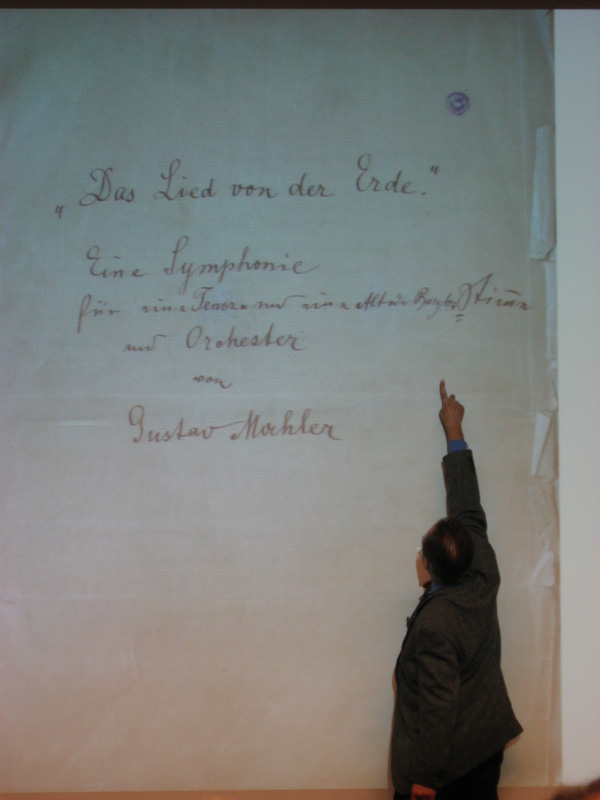 „Das Lied von der Erde."
Eine Symphonie
für eine Tenor und eine Alt Stimme
und Orchester
von
Gustav Mahler